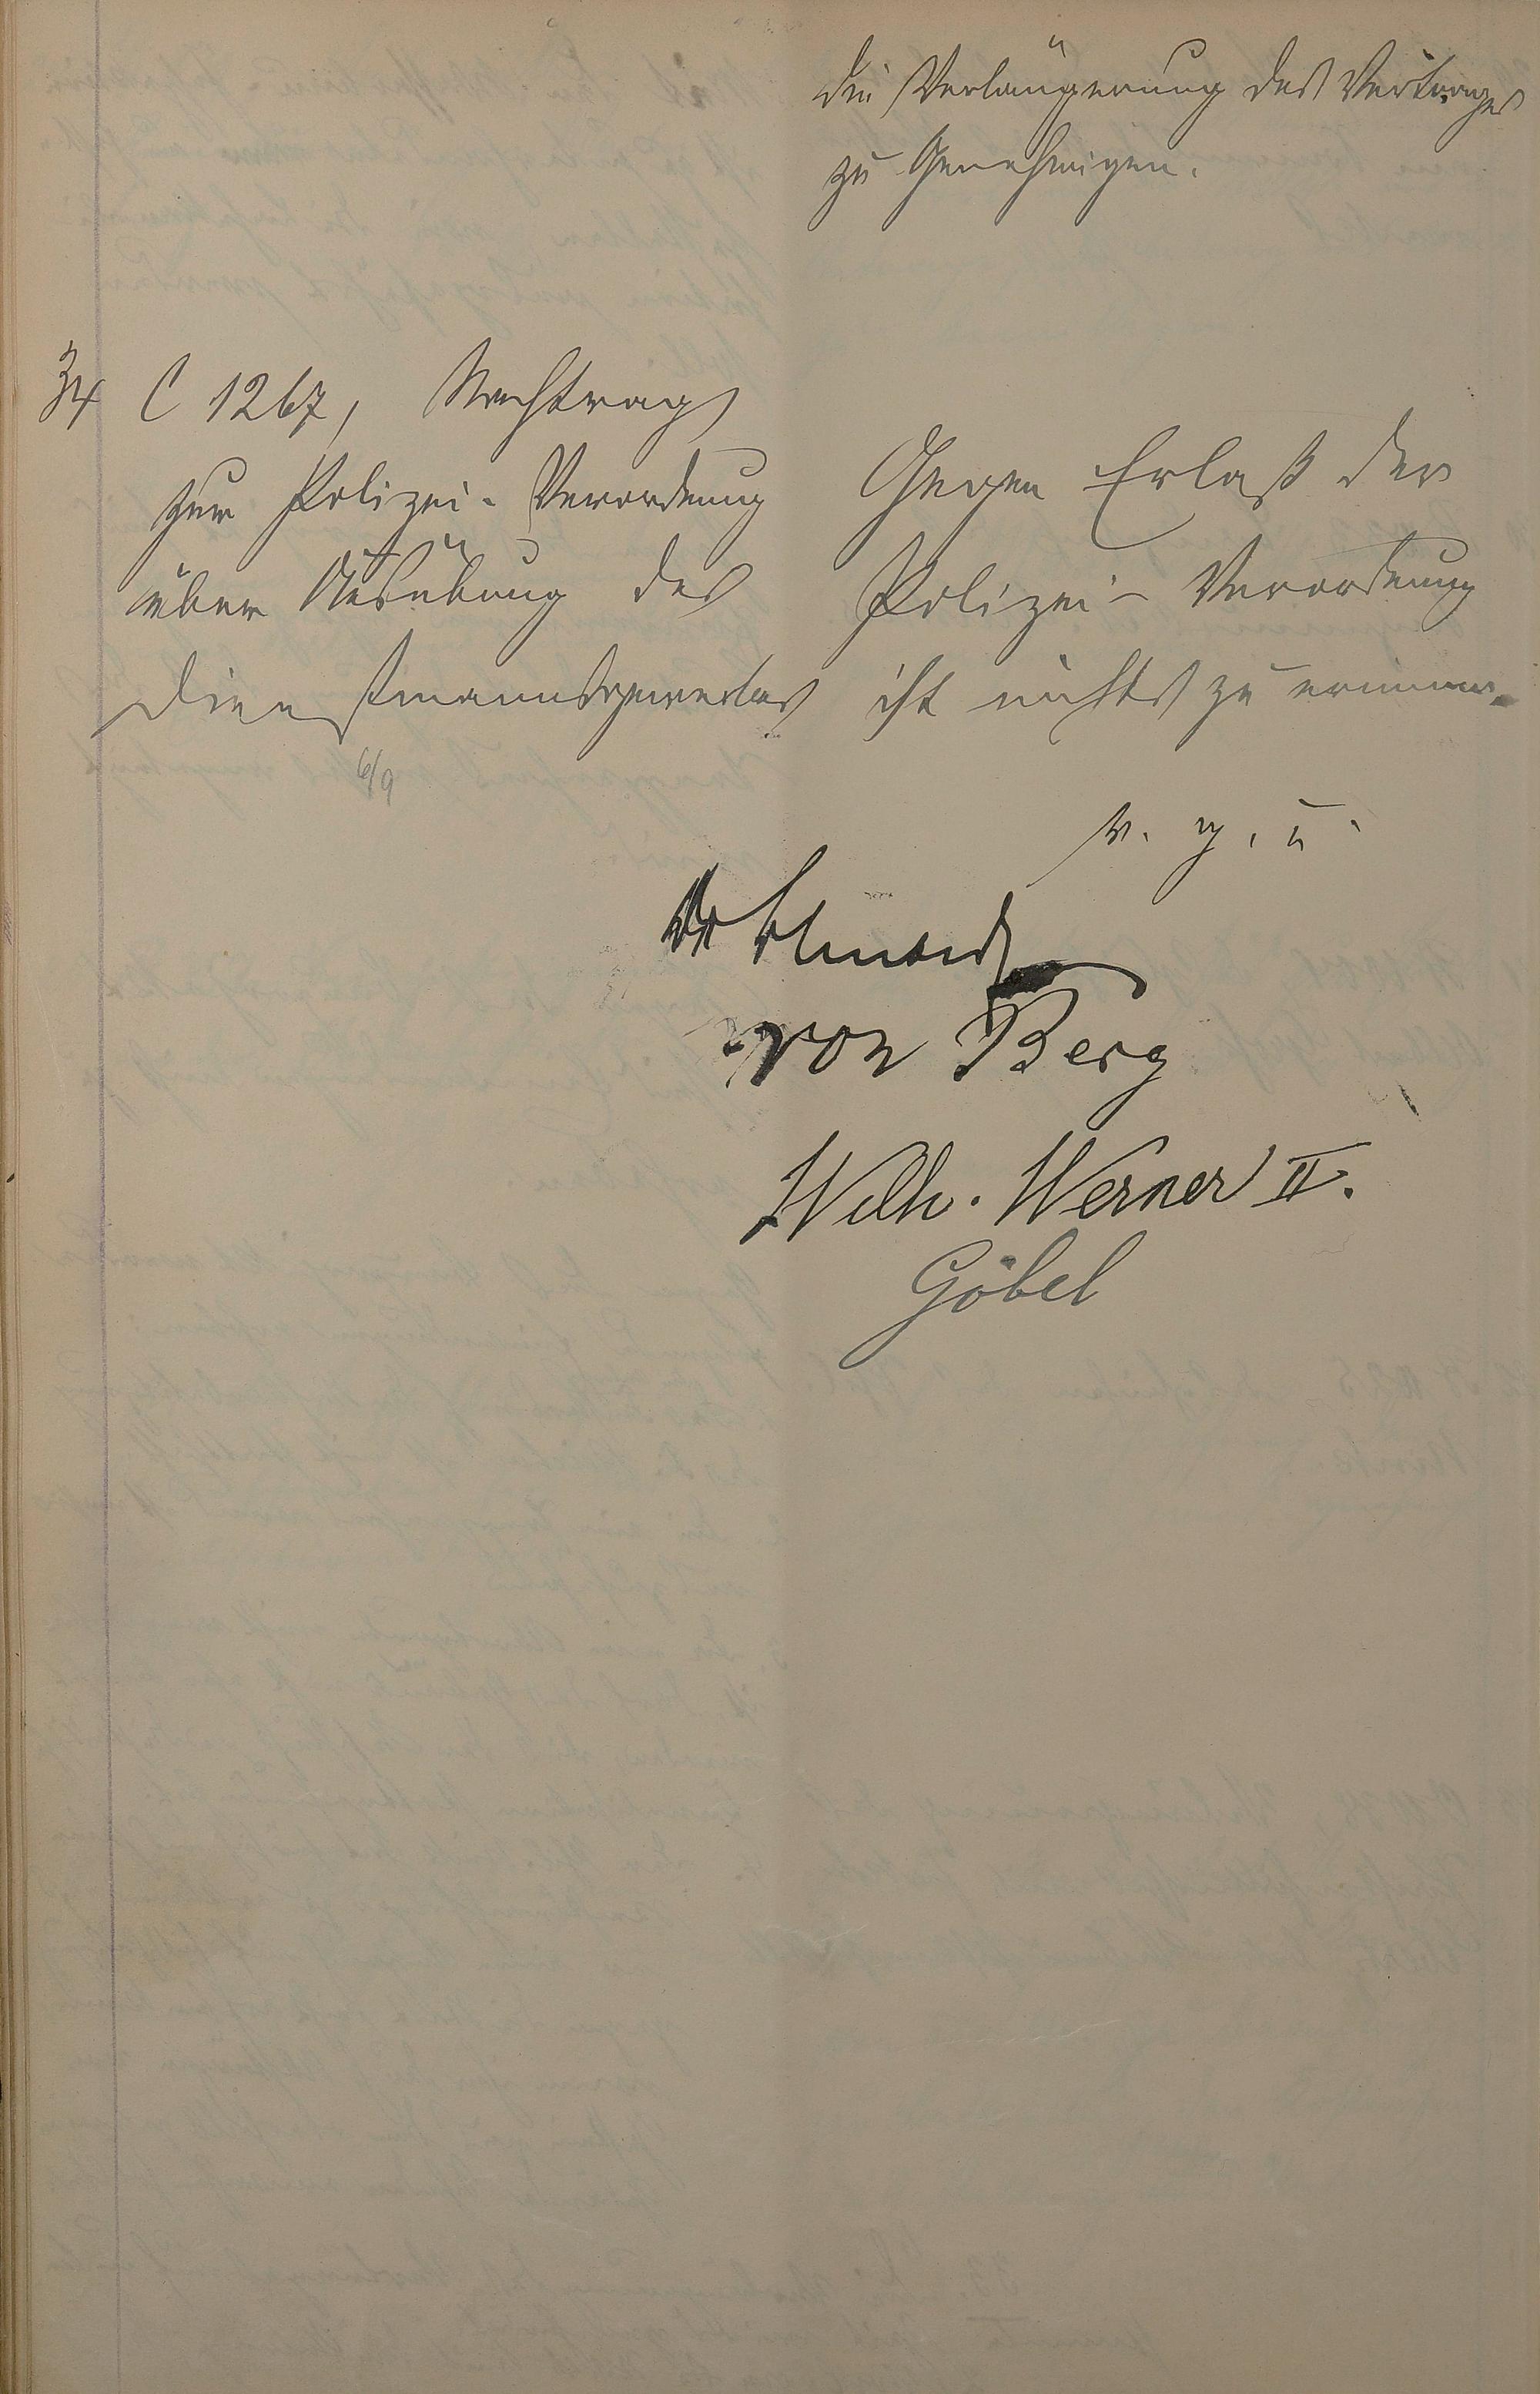 die Verlängerung des Vertrages
zu Genehmigen.
34 C 1267, Nachtrag
zur Polizei-Verordnung
über Ausübung des
Dienstmannsgewerbes
6/9
Gegen Erlaß der
Polizei-Verordnung
ist nichts zu erinnern.
v. g. u.
von Berg
Wilh. Werner II.
Göbel